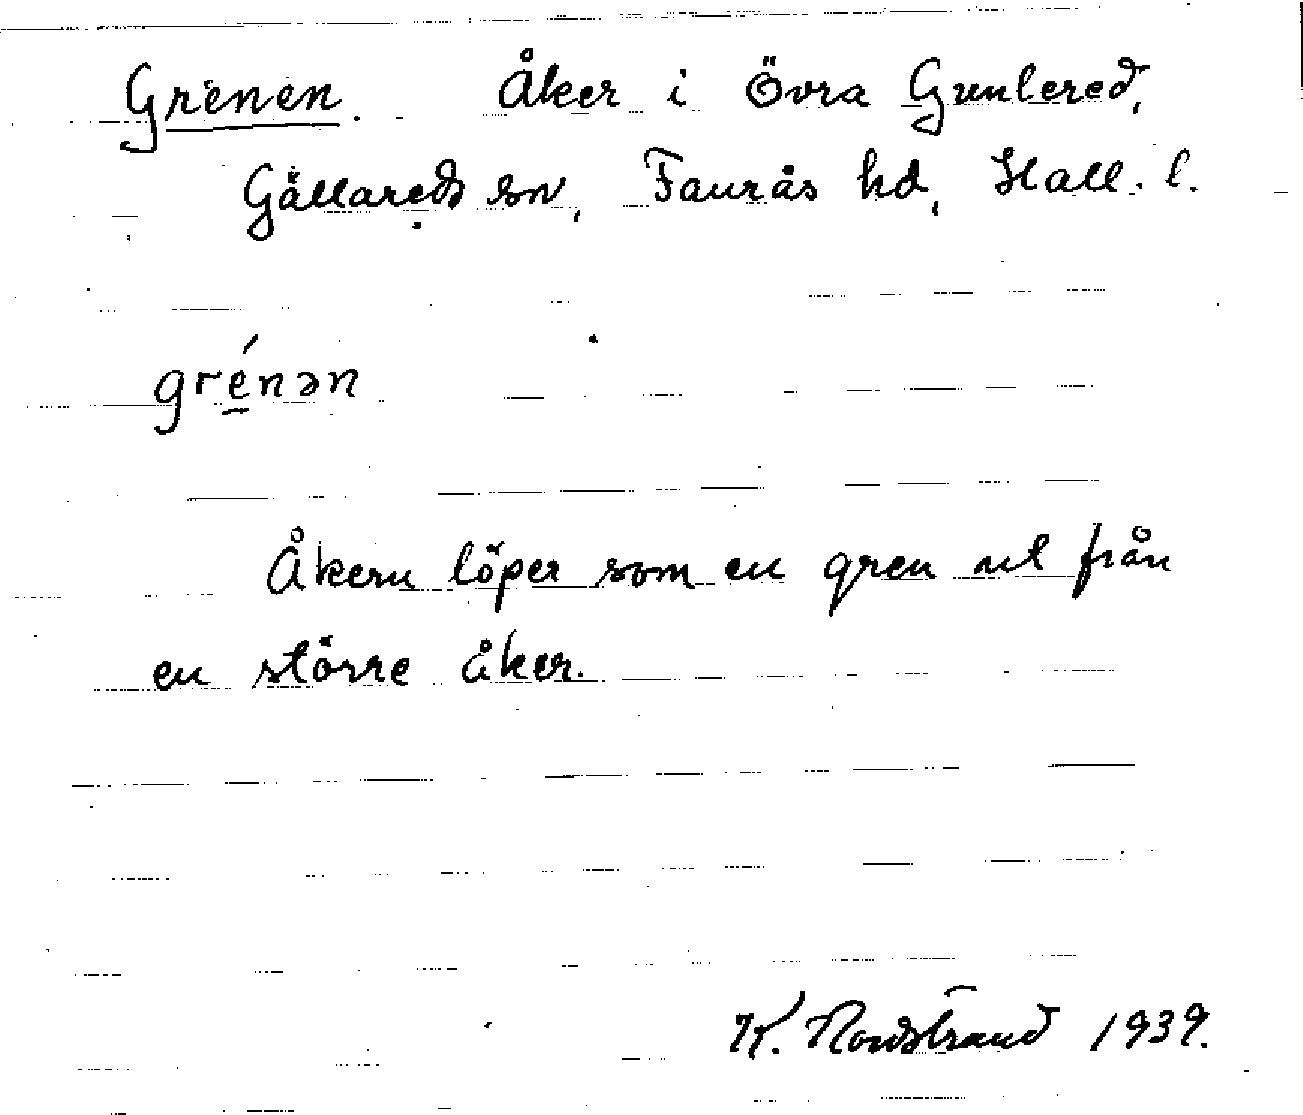 Grenen. Åker i Övra Gunlered,
Gällareds sn, Faurås hd, Hall. l.
grénən
Åkern löper som en gren ut från
en större åker.
K. Nordstrand 1939.